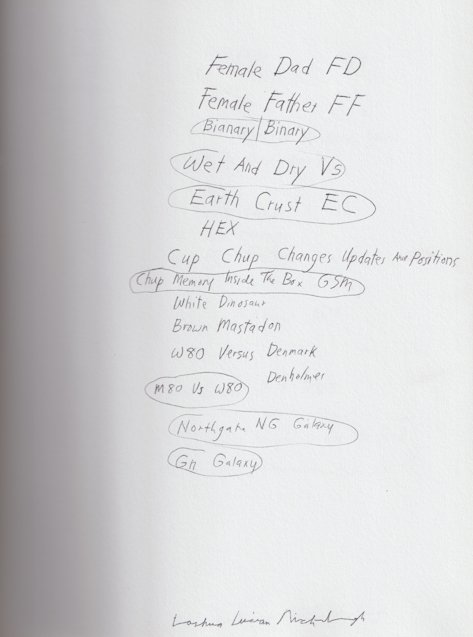 Female Dad FD
Female Father FF
Bianary|Binary
Wet And Dry Vs
Earth Crust EC
HEX
Cup Chup Changes Updates And Positions
Chup Memory Inside The Box GSM
White Dinosaur
Brown Mastadon
W80 Versus Denmark
Denholmer
M80 Vs W80
Northgate NG Galaxy
Galaxy